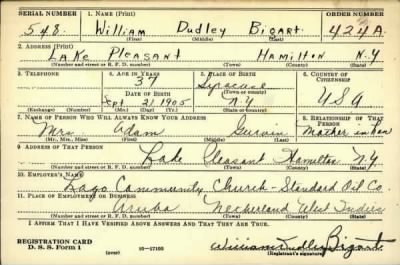 SERIAL NUMBER 1. NAME (Print) ORDER NUMBER
548 William Dudley Bigart 424A
(First) (Middle) (Last)
2. ADDRESS (Print)
Lake Pleasant Hamilton N.Y
(Number and street or R. F. D. number) (Town) (County) (State)
3. TELEPHONE 4. AGE IN YEARS 5. PLACE OF BIRTH 6. COUNTRY OF CITIZENSHIP
37 Syracuse
DATE OF BIRTH (Town or county)
Sept 21 1905 N.Y USA
(Exchange) (Number) (Mo.) (Day) (Yr.) (State or country)
7. NAME OF PERSON WHO WILL ALWAYS KNOW YOUR ADDRESS 8. RELATIONSHIP OF THAT PERSON
Mrs. Adam Mother in law
(Mr., Mrs., Miss) (First) (Middle) (Last)
9. ADDRESS OF THAT PERSON
Lake Pleasant Hamilton N.Y
(Number and street or R. F. D. number) (Town) (County) (State)
10. EMPLOYER'S NAME
Lago Community Church - Standard Oil Co.
11. PLACE OF EMPLOYMENT OR BUSINESS
Aruba Netherland West Indies
(Number and street or R. F. D. number) (Town) (County) (State)
I AFFIRM THAT I HAVE VERIFIED ABOVE ANSWERS AND THAT THEY ARE TRUE.
REGISTRATION CARD
D. S. S. Form 1 (over) 16-17105 William Dudley Bigart
(Registrant's signature)